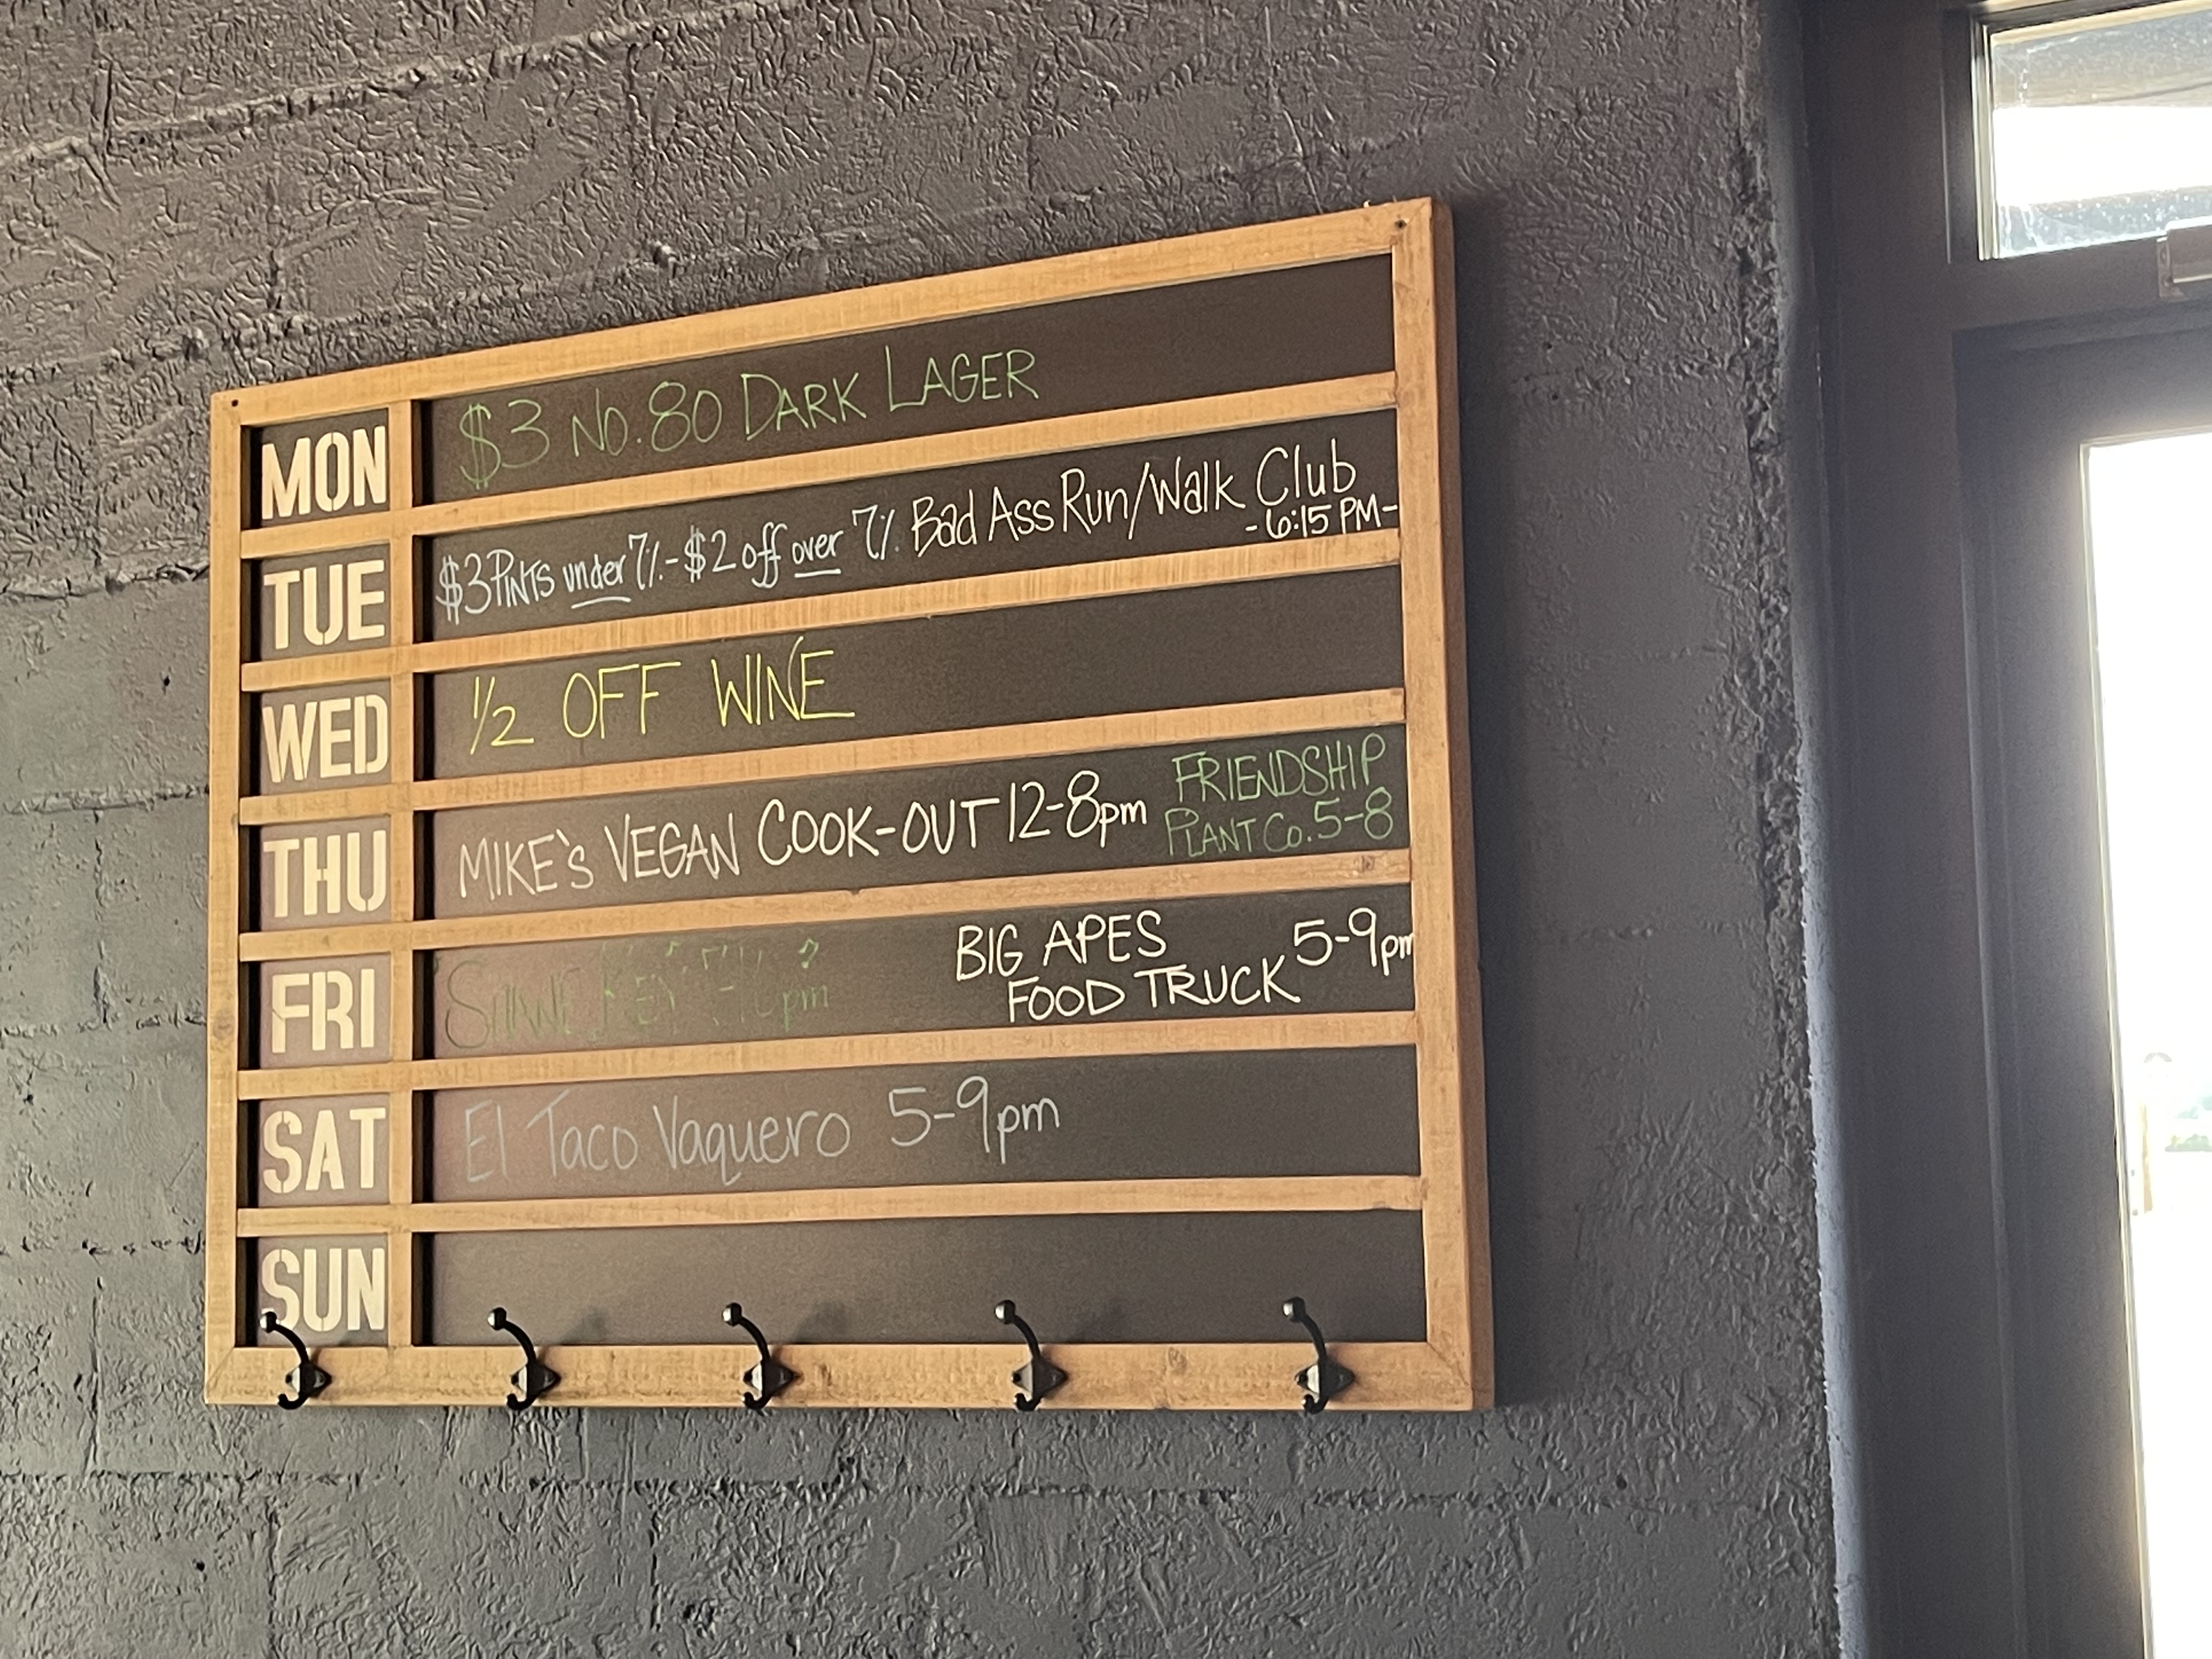 MON $3 No. 80 DARK LAGER
TUE $3 PINTS under 7% - $2 off over 7% Bad Ass Run/Walk Club
-6:15 PM-
WED 1/2 OFF WINE
THU MIKE'S VEGAN COOK-OUT 12-8pm FRIENDSHIP
PLANT Co. 5-8
FRI BIG APES 5-9pm
FOOD TRUCK
SAT El Taco Vaquero 5-9pm
SUN